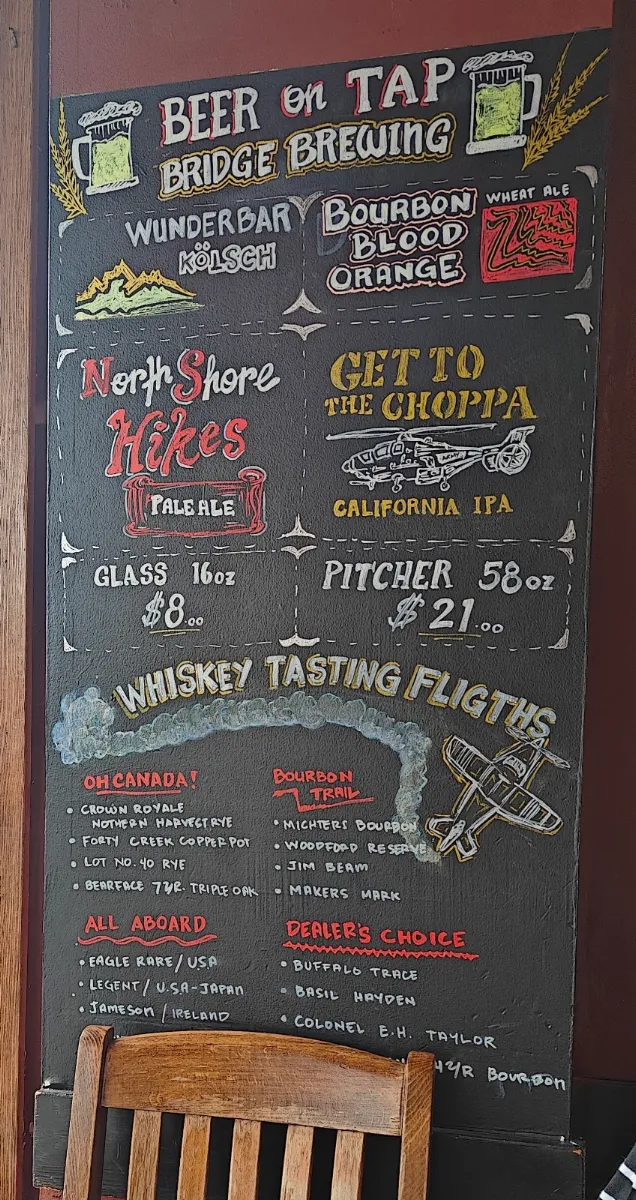 BEER on TAP
BRIDGE BREWING
WUNDERBAR
KÖLSCH
BOURBON
BLOOD
ORANGE
WHEAT ALE
North Shore
Hikes
PALE ALE
GET TO
THE CHOPPA
CALIFORNIA IPA
GLASS 16oz
$8.00
PITCHER 58oz
$21.00
WHISKEY TASTING FLIGTHS
OH CANADA!
• CROWN ROYALE
NOTHERN HARVEST RYE
• FORTY CREEK COPPER POT
• LOT NO. 40 RYE
• BEARFACE 7YR. TRIPLE OAK
BOURBON
TRAIL
• MICHTERS BOURBON
• WOODFORD RESERVE
• JIM BEAM
• MAKERS MARK
ALL ABOARD
• EAGLE RARE / USA
• LEGENT / USA-JAPAN
• JAMESON / IRELAND
DEALER'S CHOICE
• BUFFALO TRACE
• BASIL HAYDEN
• COLONEL E.H. TAYLOR
BOURBON